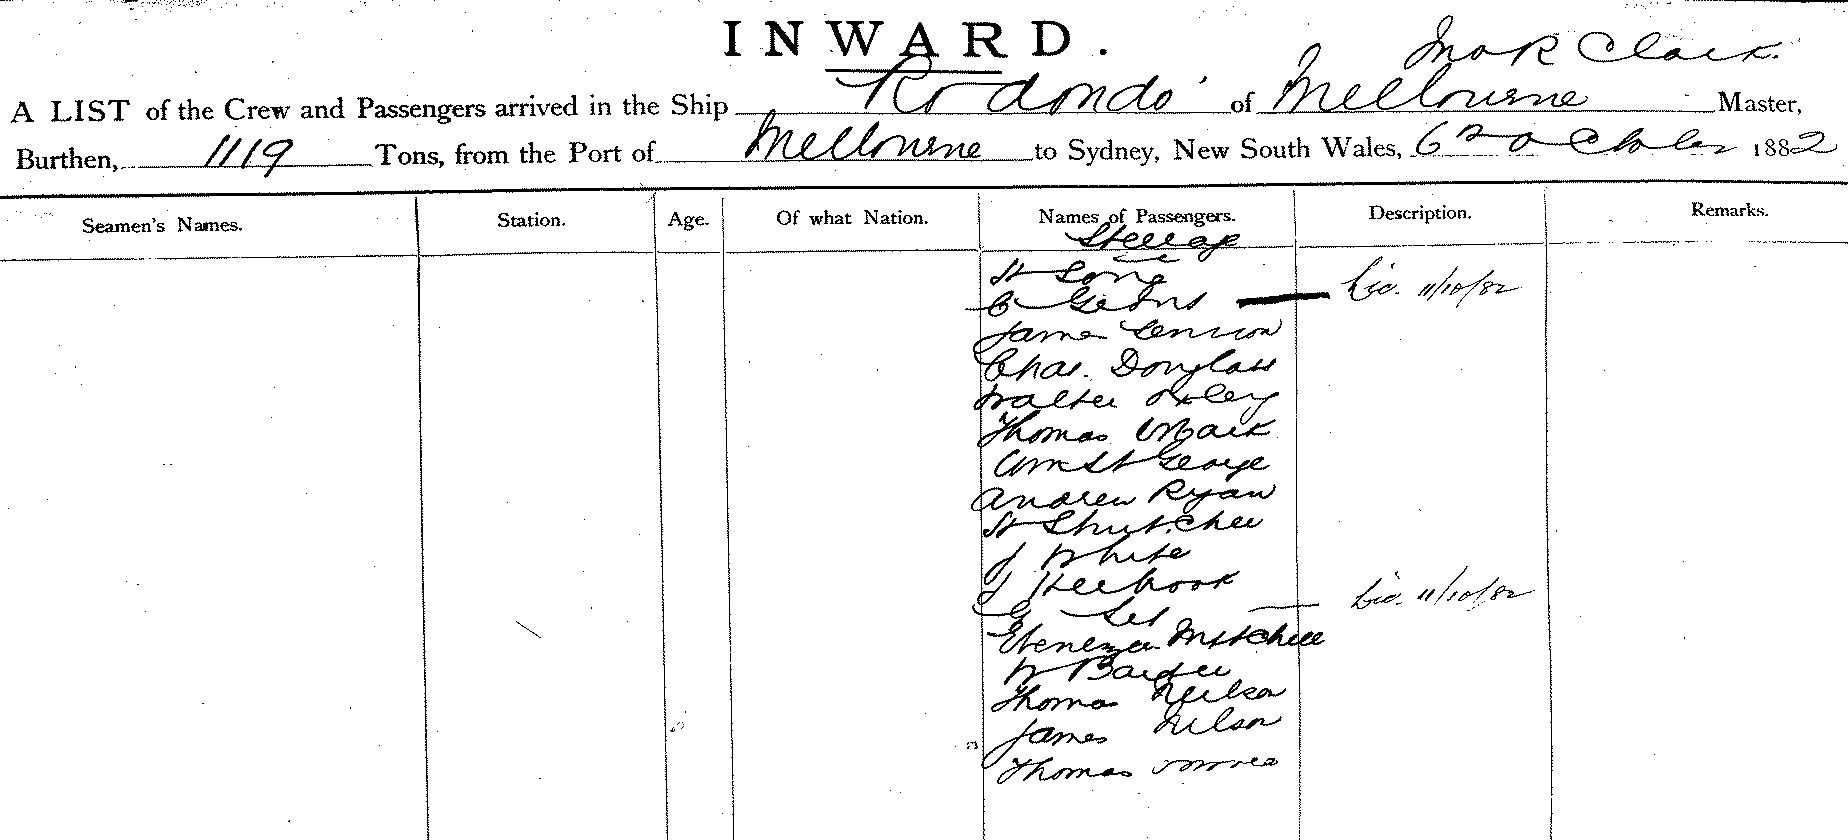 INWARD.
Clark.
A LIST of the Crew and Passengers arrived in the Ship Rodondo of Melbourne Master,
Burthen, 1119 Tons, from the Port of Melbourne to Sydney, New South Wales, 6 October 1882
Seamen's Names. Station. Age. Of what Nation. Names of Passengers. Description. Remarks.
Steerage
H Long
C 11/10/82
James
Chas. Douglass
Walter Oxley
Thomas
Wm St George
Andrew Ryan
H
J White
J
G 11/10/82
Ebenezer Mitchell
W
Thomas Neilson
James Nilson
Thomas